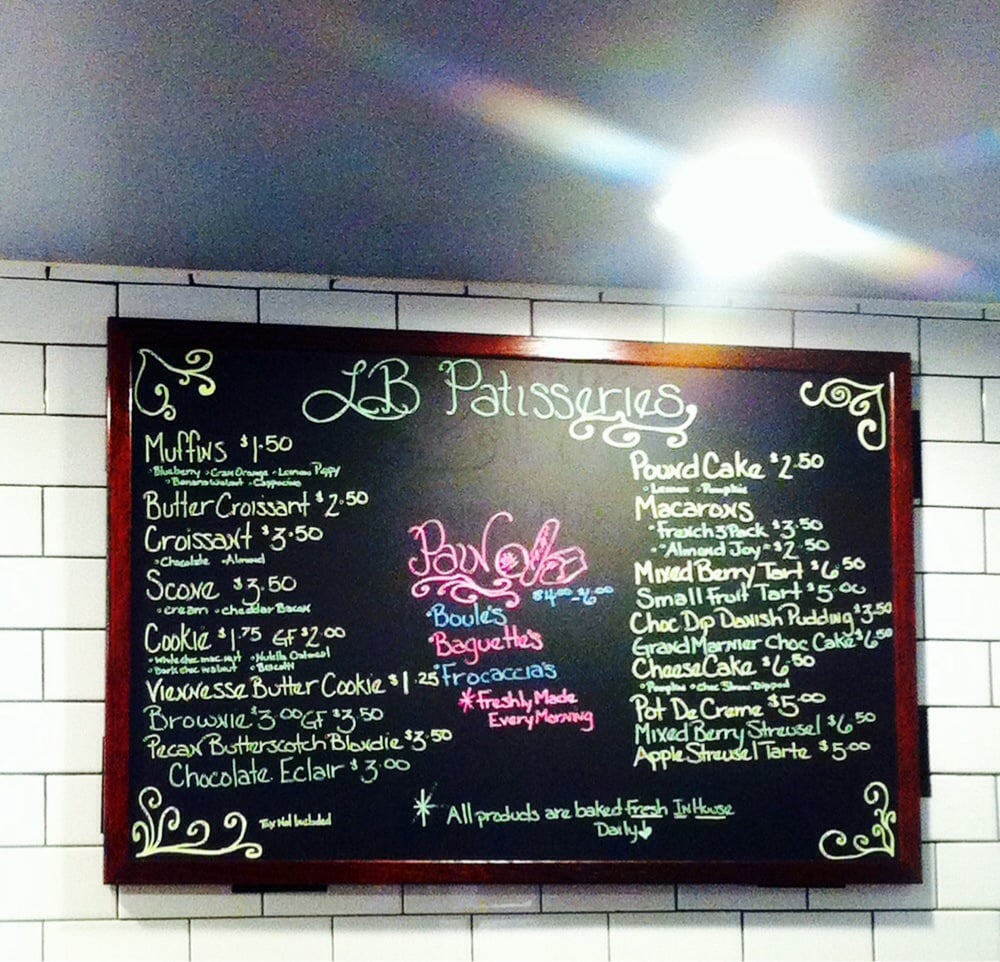 LB Patisseries
Muffins $1.50
• Blueberry • Cran Orange • Lemon Poppy
• Banana Walnut • Cappucino
Butter Croissant $2.50
Croissant $3.50
• Chocolate • Almond
Scone $3.50
• cream • cheddar Bacon
Cookie $1.75 GF $2.00
• White choc mac nut • Nutella Oatmeal
• Dark choc walnut • Biscotti
Viennesse Butter Cookie $1.25
Brownie $3.00 GF $3.50
Pecan Butterscotch Blondie $3.50
Chocolate Eclair $3.00
Tax Not Included
$4.00-6.00
• Boule's
• Baguette's
• Frocaccia's
* Freshly Made
Every Morning
Pound Cake $2.50
• Lemon • Pumpkin
Macarons
• French 3 Pack $3.50
• "Almond Joy" $2.50
Mixed Berry Tart $6.50
Small Fruit Tart $5.00
Choc Dip Danish Pudding $3.50
Grand Marnier Choc Cake $6.50
CheeseCake $6.50
• Pumpkin • choc Straw Dipped
Pot De Creme $5.00
Mixed Berry Streusel $6.50
Apple Streusel Tarte $5.00
* All products are baked fresh In House
Daily